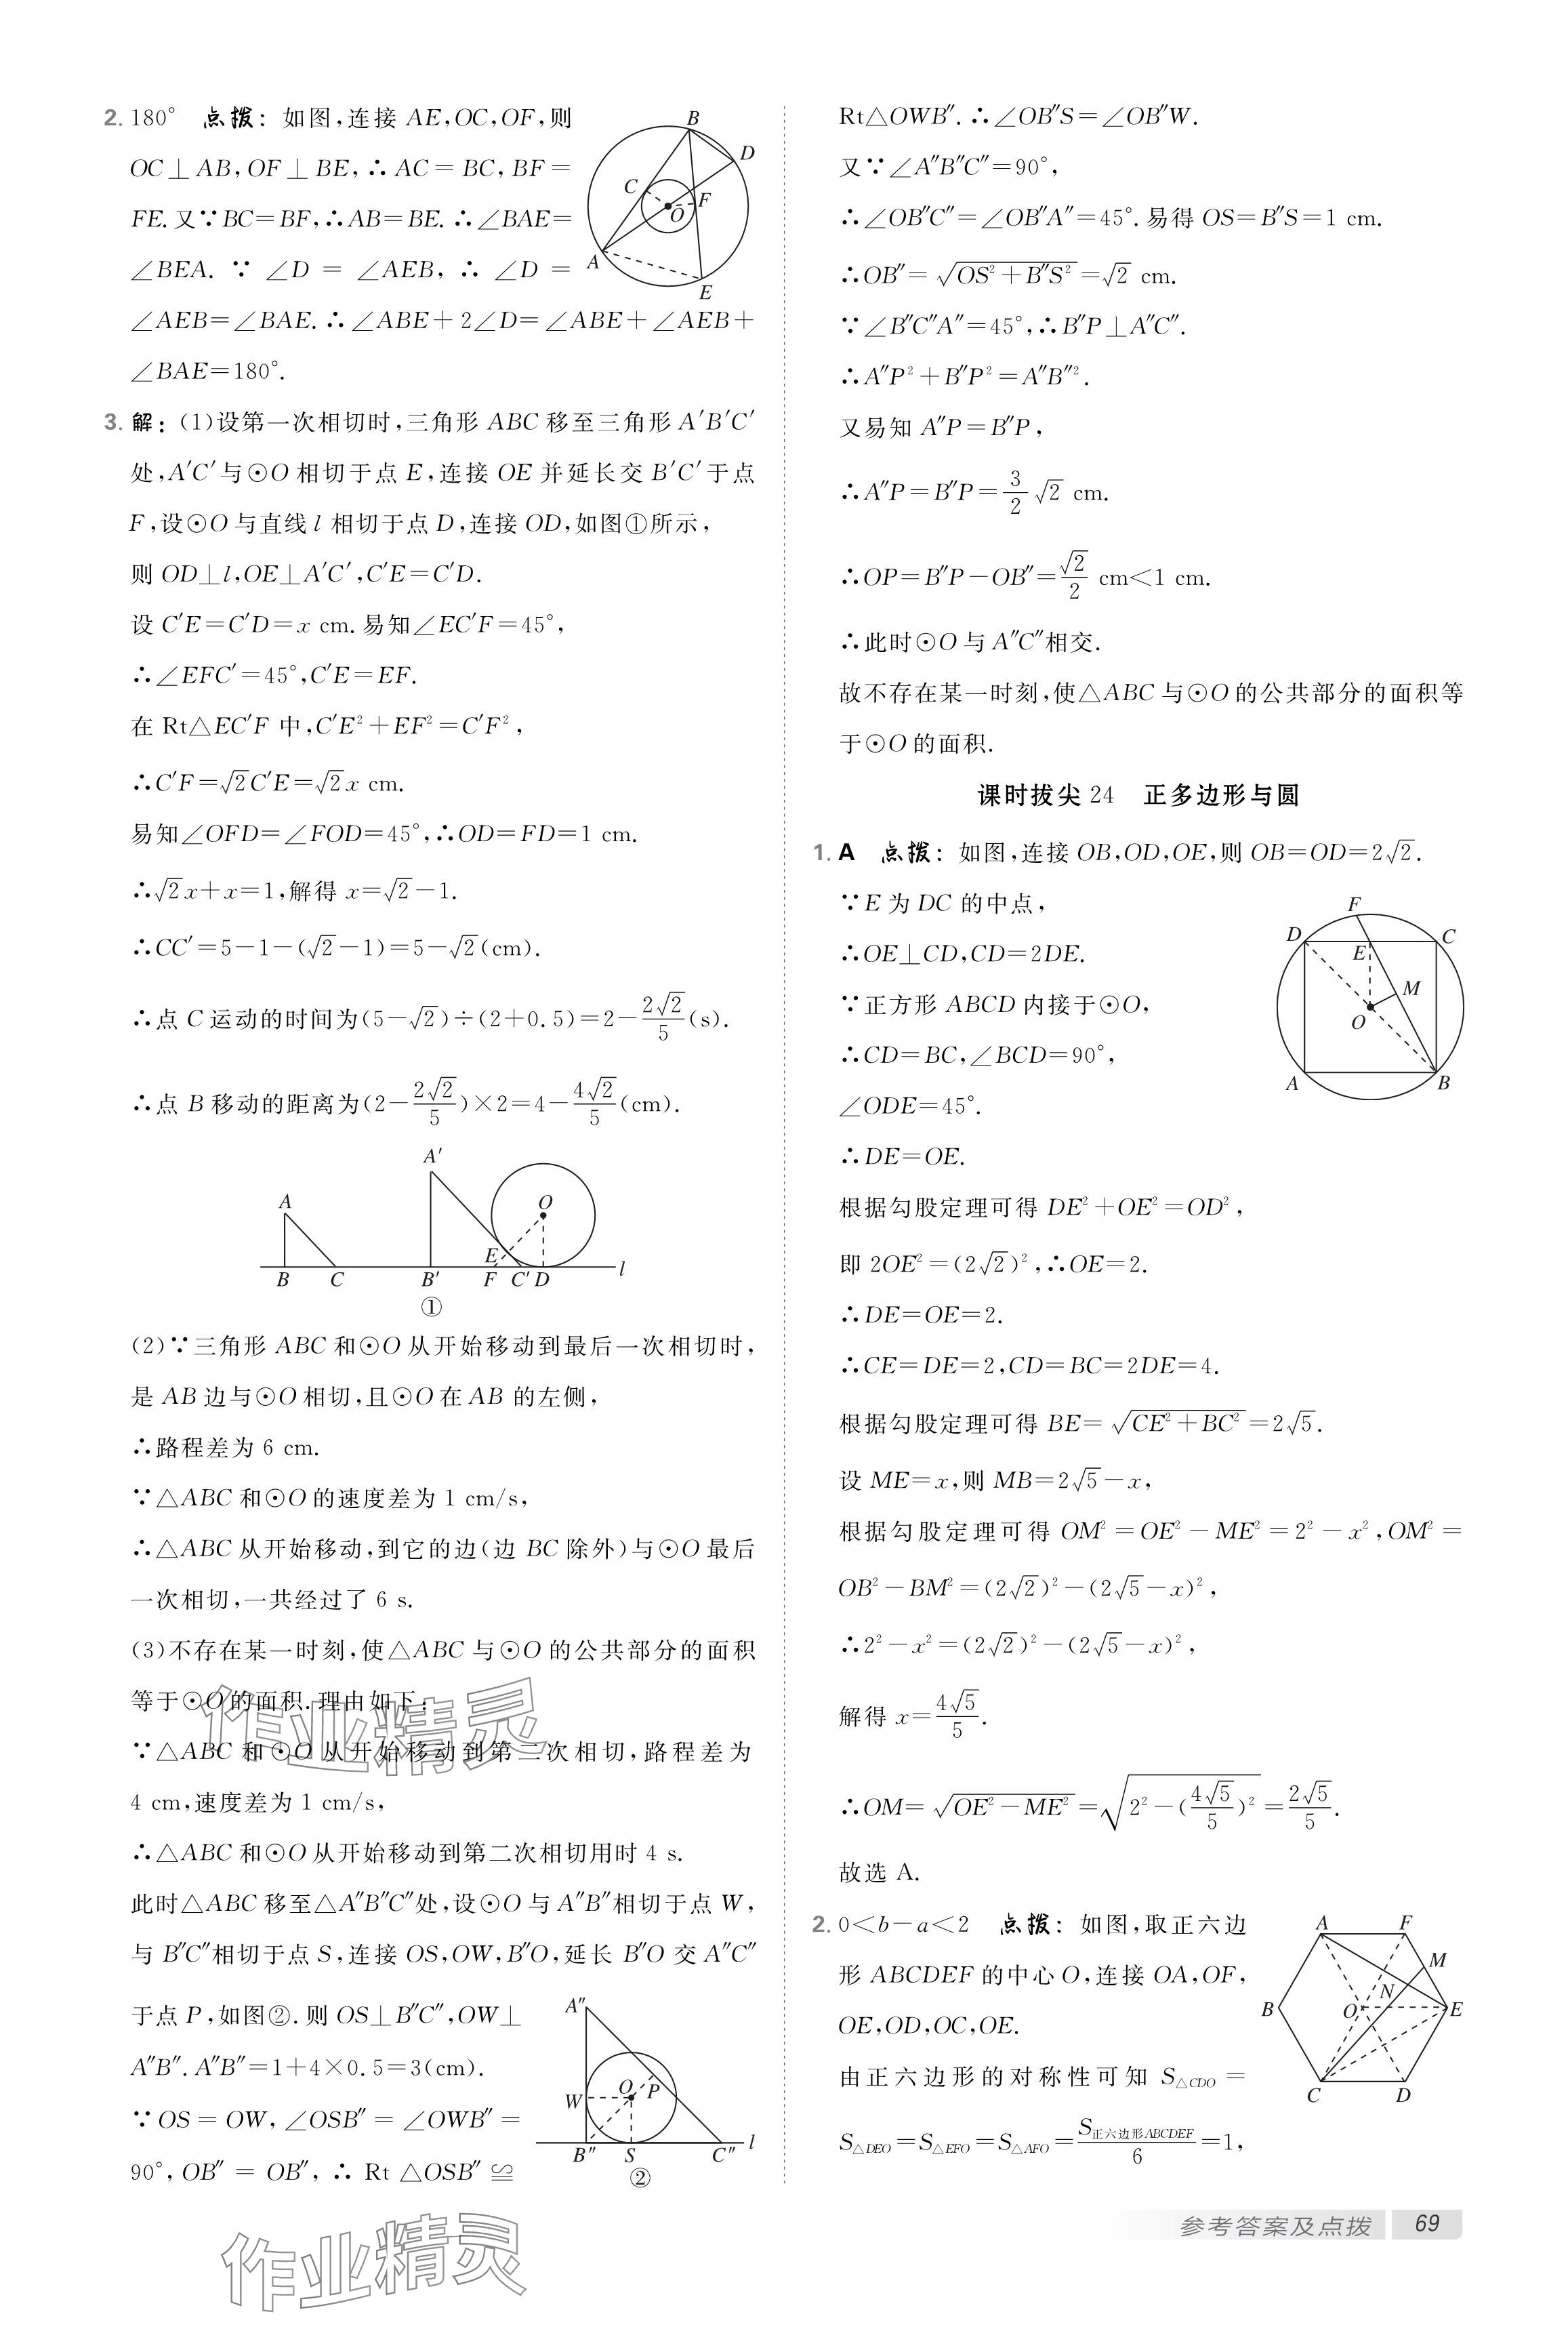 2. 180° 点拨：如图,连接 AE,OC,OF,则
OC⊥AB,OF⊥BE,∴AC=BC,BF=
FE.又∵BC=BF,∴AB=BE.∴∠BAE=
∠BEA. ∵ ∠D = ∠AEB, ∴ ∠D =
∠AEB=∠BAE.∴∠ABE+2∠D=∠ABE+∠AEB+
∠BAE=180°.
B
D
C
F
O
A
E
3. 解：(1)设第一次相切时,三角形 ABC 移至三角形 A′B′C′
处,A′C′与⊙O 相切于点 E,连接 OE 并延长交 B′C′于点
F,设⊙O 与直线 l 相切于点 D,连接 OD,如图①所示,
则 OD⊥l,OE⊥A′C′,C′E=C′D.
设 C′E=C′D=x cm.易知∠EC′F=45°,
∴∠EFC′=45°,C′E=EF.
在 Rt△EC′F 中,C′E²+EF²=C′F²,
∴C′F=√2C′E=√2x cm.
易知∠OFD=∠FOD=45°,∴OD=FD=1 cm.
∴√2x+x=1,解得 x=√2-1.
∴CC′=5-1-(√2-1)=5-√2(cm).
∴点 C 运动的时间为(5-√2)÷(2+0.5)=2-2√2/5(s).
∴点 B 移动的距离为(2-2√2/5)×2=4-4√2/5(cm).
A′
A
O
E
B C B′ F C′ D l
①
(2)∵三角形 ABC 和⊙O 从开始移动到最后一次相切时,
是 AB 边与⊙O 相切,且⊙O 在 AB 的左侧,
∴路程差为 6 cm.
∵△ABC 和⊙O 的速度差为 1 cm/s,
∴△ABC 从开始移动,到它的边(边 BC 除外)与⊙O 最后
一次相切,一共经过了 6 s.
(3)不存在某一时刻,使△ABC 与⊙O 的公共部分的面积
等于⊙O 的面积.理由如下：
∵△ABC 和⊙O 从开始移动到第二次相切,路程差为
4 cm,速度差为 1 cm/s,
∴△ABC 和⊙O 从开始移动到第二次相切用时 4 s.
此时△ABC 移至△A″B″C″处,设⊙O 与 A″B″相切于点 W,
与 B″C″相切于点 S,连接 OS,OW,B″O,延长 B″O 交 A″C″
于点 P,如图②.则 OS⊥B″C″,OW⊥
A″B″.A″B″=1+4×0.5=3(cm).
∵OS=OW,∠OSB″=∠OWB″=
90°,OB″=OB″,∴Rt△OSB″≌
A″
O
P
W
B″ S C″ l
②
Rt△OWB″.∴∠OB″S=∠OB″W.
又∵∠A″B″C″=90°,
∴∠OB″C″=∠OB″A″=45°.易得 OS=B″S=1 cm.
∴OB″=√(OS²+B″S²)=√2 cm.
∵∠B″C″A″=45°,∴B″P⊥A″C″.
∴A″P²+B″P²=A″B″².
又易知 A″P=B″P,
∴A″P=B″P=3/2√2 cm.
∴OP=B″P-OB″=√2/2 cm<1 cm.
∴此时⊙O 与 A″C″相交.
故不存在某一时刻,使△ABC 与⊙O 的公共部分的面积等
于⊙O 的面积.
课时拔尖 24 正多边形与圆
1. A 点拨：如图,连接 OB,OD,OE,则 OB=OD=2√2.
∵E 为 DC 的中点,
∴OE⊥CD,CD=2DE.
∵正方形 ABCD 内接于⊙O,
∴CD=BC,∠BCD=90°,
∠ODE=45°.
∴DE=OE.
F
D
C
E
M
O
A
B
根据勾股定理可得 DE²+OE²=OD²,
即 2OE²=(2√2)²,∴OE=2.
∴DE=OE=2.
∴CE=DE=2,CD=BC=2DE=4.
根据勾股定理可得 BE=√(CE²+BC²)=2√5.
设 ME=x,则 MB=2√5-x,
根据勾股定理可得 OM²=OE²-ME²=2²-x²,OM²=
OB²-BM²=(2√2)²-(2√5-x)²,
∴2²-x²=(2√2)²-(2√5-x)²,
解得 x=4√5/5.
∴OM=√(OE²-ME²)=√(2²-(4√5/5)²)=2√5/5.
故选 A.
2. 0<b-a<2 点拨：如图,取正六边
形 ABCDEF 的中心 O,连接 OA,OF,
OE,OD,OC,OE.
由正六边形的对称性可知 S△CDO=
S△DEO=S△EFO=S△AFO=S正六边形ABCDEF/6=1,
A
F
M
N
B
O
E
C
D
参考答案及点拨 69
作业精灵
作业精灵